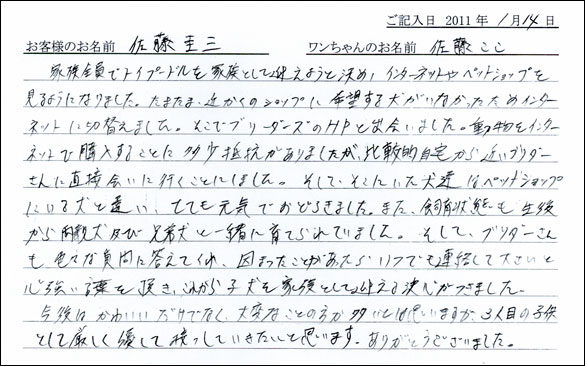 ご記入日 2011年 1月14日
お客様のお名前 佐藤圭三 ワンちゃんのお名前 佐藤ここ
家族全員でトイプードルを家族として迎えようと決め、インターネットやペットショップを
見るようになりました。たまたま、近かくのショップに希望する犬がいなかったためインター
ネットに切替えました。そこでブリーダーズのHPと出会いました。動物をインター
ネットで購入することに多少抵抗がありましたが、比較的自宅から近いブリダー
さんに直接会いに行くことにしました。そして、そこにいた犬達はペットショップ
にいる犬と違い、とても元気でおどろきました。また、飼育状態も生後
から両親犬及び兄弟犬と一緒に育てられていました。そして、ブリダーさん
も色々な質問に答えてくれ、困まったことがあったらいつでも連絡して下さいと
心強い言葉を頂き、これから子犬を家族として迎える決心がつきました。
今後はかわいいだけでなく、大変なことの方が多いとは思いますが、3人目の子供
として厳しく優しく接っしていきたいと思います。ありがとうございました。